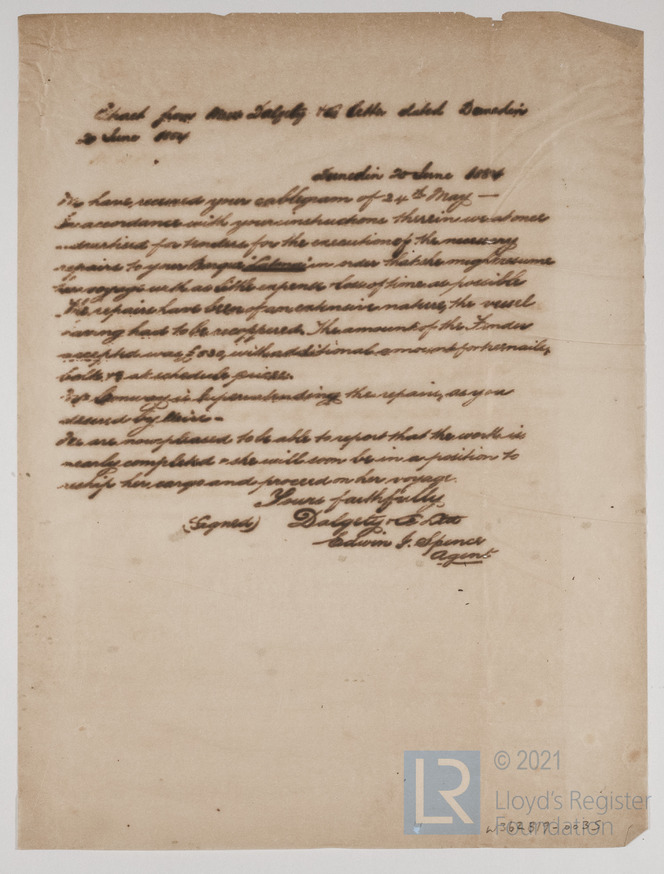 Extract from Messrs Dalgety & Co letter dated Dunedin
20 June 1884
Dunedin 20 June 1884
We have received your cablegram of 24th May —
In accordance with your instructions therein we at once
advertised for tenders for the execution of the necessary
repairs to your Barque in order that she might resume
her voyage with as little expense & loss of time as possible
The repairs have been of an extensive nature, the vessel
having had to be recoppered. The amount of the Tender
accepted was with additional amount for
bolts &c at schedule prices.
Mr Conway is superintending the repairs, as you
desired by wire –
We are now pleased to be able to report that the work is
nearly completed & she will soon be in a position to
reship her cargo and proceed on her voyage.
Yours faithfully
(Signed) Dalgety & Co Ltd
Edwin J. Spence
Agent
LR
© 2021
Lloyd's Register
Foundation
W362519-0035